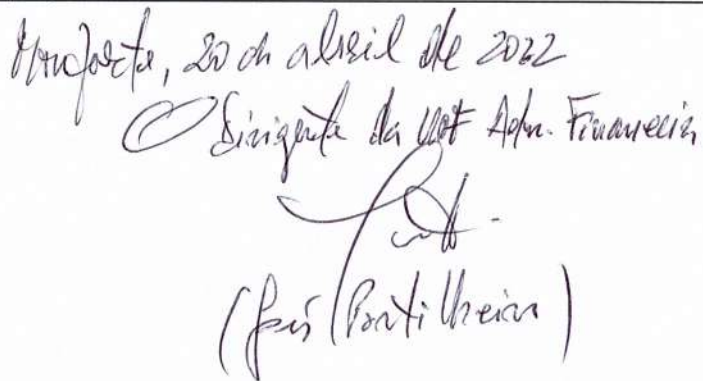 Monforte, 20 de abril de 2022
O Dirigente da UOF Adm. Financeira
(José Portilheiro)